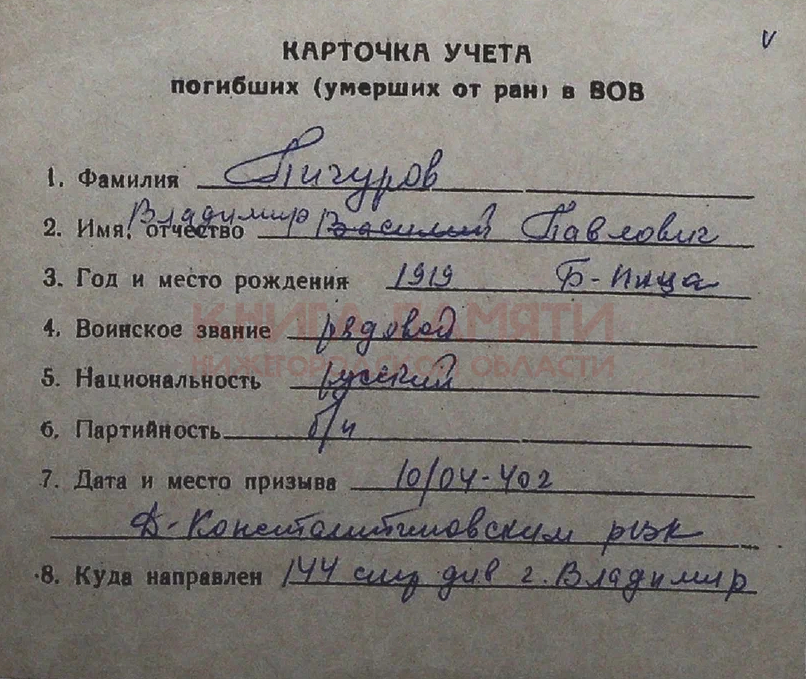 V
КАРТОЧКА УЧЕТА
погибших (умерших от ран) в ВОВ
1. Фамилия Пичуров
2. Имя, отчество Владимир Василий Павлович
3. Год и место рождения 1919 Б-Пица
КНИГА ПАМЯТИ
4. Воинское звание рядовой
НИЖЕГОРОДСКОЙ ОБЛАСТИ
5. Национальность русский
6. Партийность б/п
7. Дата и место призыва 10/04-40г
Д-Константиновским рвк
8. Куда направлен 144 див г. Владимир